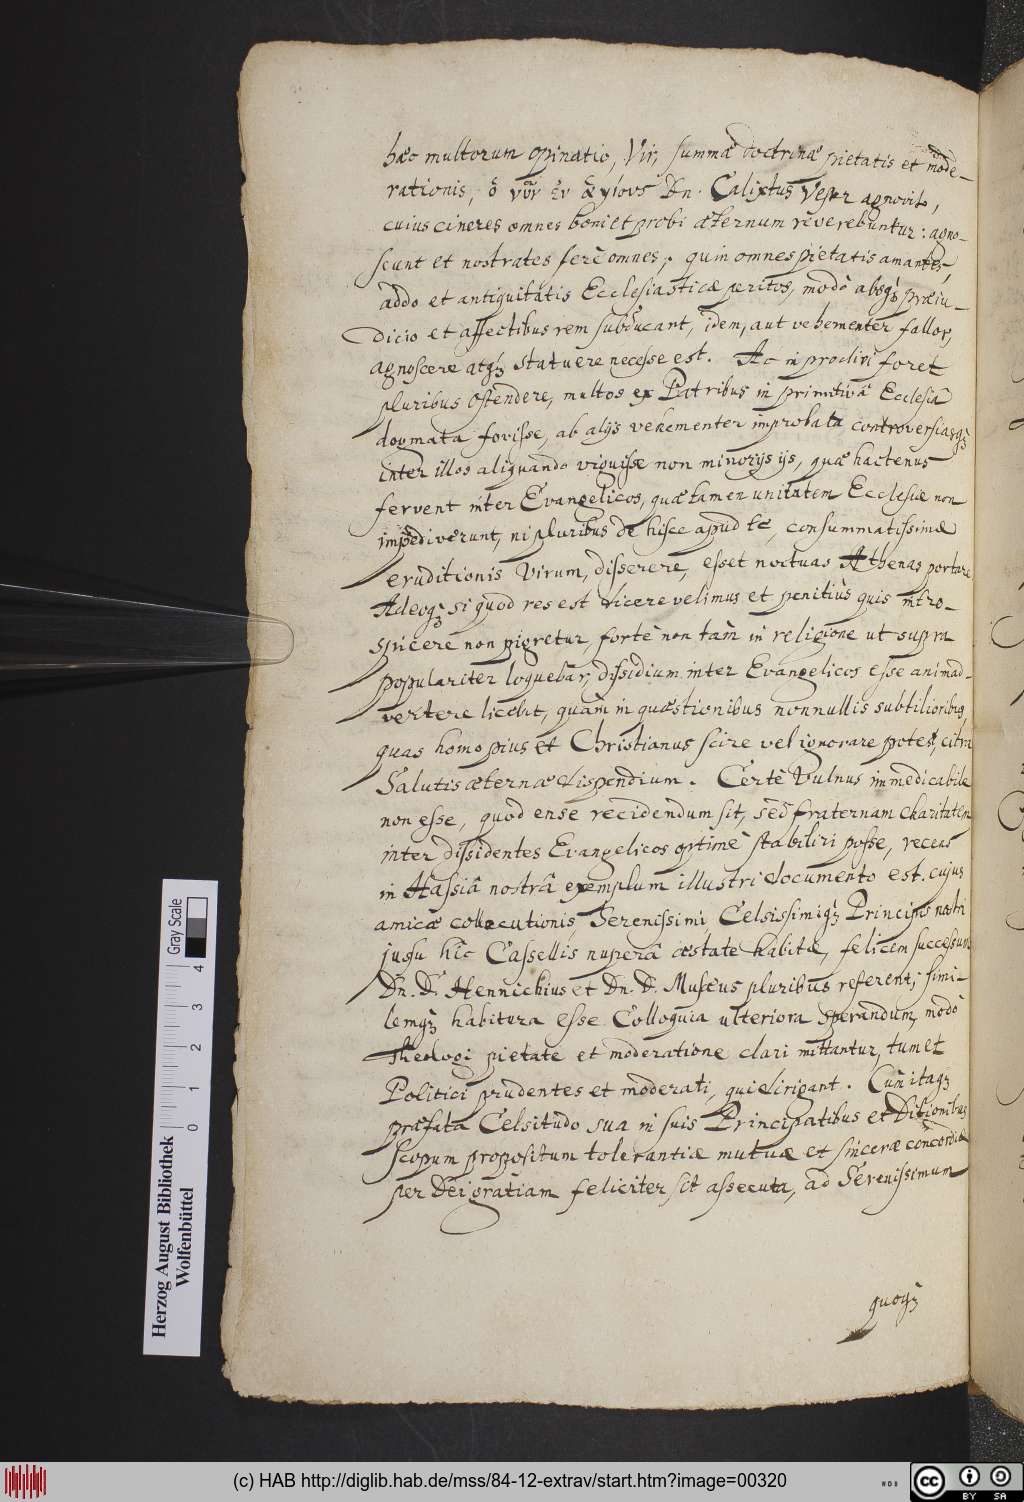 hæc multorum opinatio, Vir, summæ doctrinæ pietatis et mode-
rationis, ὁ νῦν ἐν ἁγίοις Dn. Calixtus Vester agnovit,
cuius cineres omnes boni et probi æternum reverebuntur: agno-
scunt et nostrates ferè omnes, quin omnes pietatis amantes,
addo et antiquitatis Ecclesiasticæ peritos, modò absq; præiu-
dicio et affectibus rem subducant, idem, aut vehementer fallor,
agnoscere atq; statuere necesse est. Ac in proclivi foret
pluribus ostendere, multos ex Patribus in primitivâ Ecclesiâ
dogmata fovisse, ab alijs vehementer improbata controversiasq;
inter illos aliquando viguisse non minorijs ijs, quæ hactenus
fervent inter Evangelicos, quæ tamen unitatem Ecclesiæ non
impediverunt, ni pluribus de hisce apud te, consummatissimæ
eruditionis Virum, disserere, esset noctuas Athenas portare
Adeoq; si quod res est dicere velimus et penitiùs quis intro-
spicere non pigretur, fortè non tàm in religione ut supra
populariter loquebar, dissidium inter Evangelicos esse animad-
vertere licebit, quàm in quæstionibus nonnullis subtilioribus,
quas homo pius et Christianus scire vel ignorare potest, citra
Salutis æternæ dispendium. Certè Vulnus immedicabile
non esse, quod ense recidendum sit, sed fraternam charitatem
inter dissidentes Evangelicos optimè stabiliri posse, recens
in Hassiâ nostrâ exemplum illustri documento est. cujus
amicæ collocutionis, Serenissimi, Celsissimiq; Principis nostri
jussu hîc Cassellis nuperâ æstate habitæ, felicem successum
Dn. D. Hennichius et Dn. D. Musæus pluribus referent; simi-
lemq; habitura esse Colloquia ulteriora sperandum, modò
Theologi pietate et moderatione clari mittantur, tum et
Politici prudentes et moderati, qui dirigant. Cùm itaq;
præfata Celsitudo sua in suis Principatibus et Ditionibus
scopum propositum tolerantiæ mutuæ et sinceræ concordiæ
per Dei gratiam feliciter sit assecuta, ad Serenissimum
quoq;
Herzog August Bibliothek
Wolfenbüttel
0 1 2 3 4
Gray Scale
(c) HAB http://diglib.hab.de/mss/84-12-extrav/start.htm?image=00320
cc BY SA